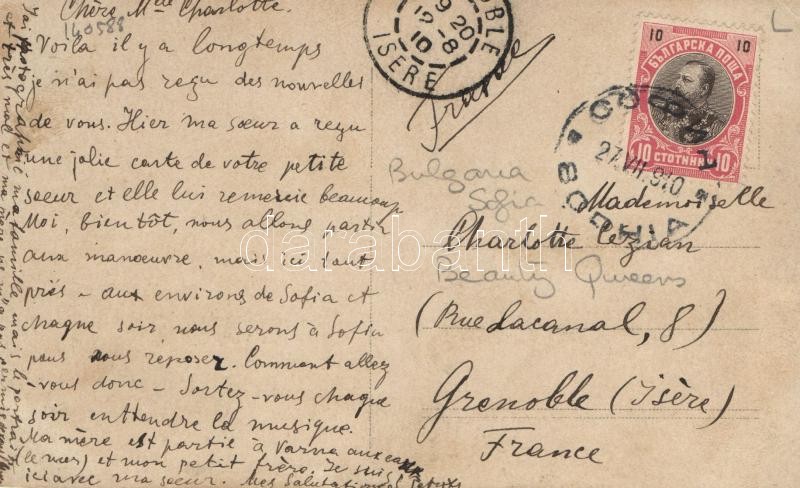 Chère Melle Charlotte.
140588
Voila il y a longtemps
je n'ai pas reçu des nouvelles
de vous. Hier ma sœur a reçu
une jolie carte de votre petite
sœur et elle lui remercie beaucoup
Moi, bientôt, nous allons partir
aux manœuvre, mais ici tout
près – aux environs de Sofia et
chaque soir nous serons à Sofia
pous nous reposer. Comment allez
vous donc – Sortez-vous chaque
soir enttendre la musique.
Ma mère est partie à Varna aux eaux
(le mer) et mon petit frère. Je suis
ici avec ma soeur. Mes Salutations
J'ai photographié ma famille mais le portrait
et très mal et ma
GRENOBLE
19 20
12-8
10
ISÈRE
France
10 10
БЪЛГАРСКА ПОЩА
10 СТОТИНКИ 10
27.VII.910
Bulgaria
Sofia
Beauty Queens
darabanth
Mademoiselle
Charlotte Cézian
(Rue Lacanal, 8)
Grenoble (Isère)
France
L